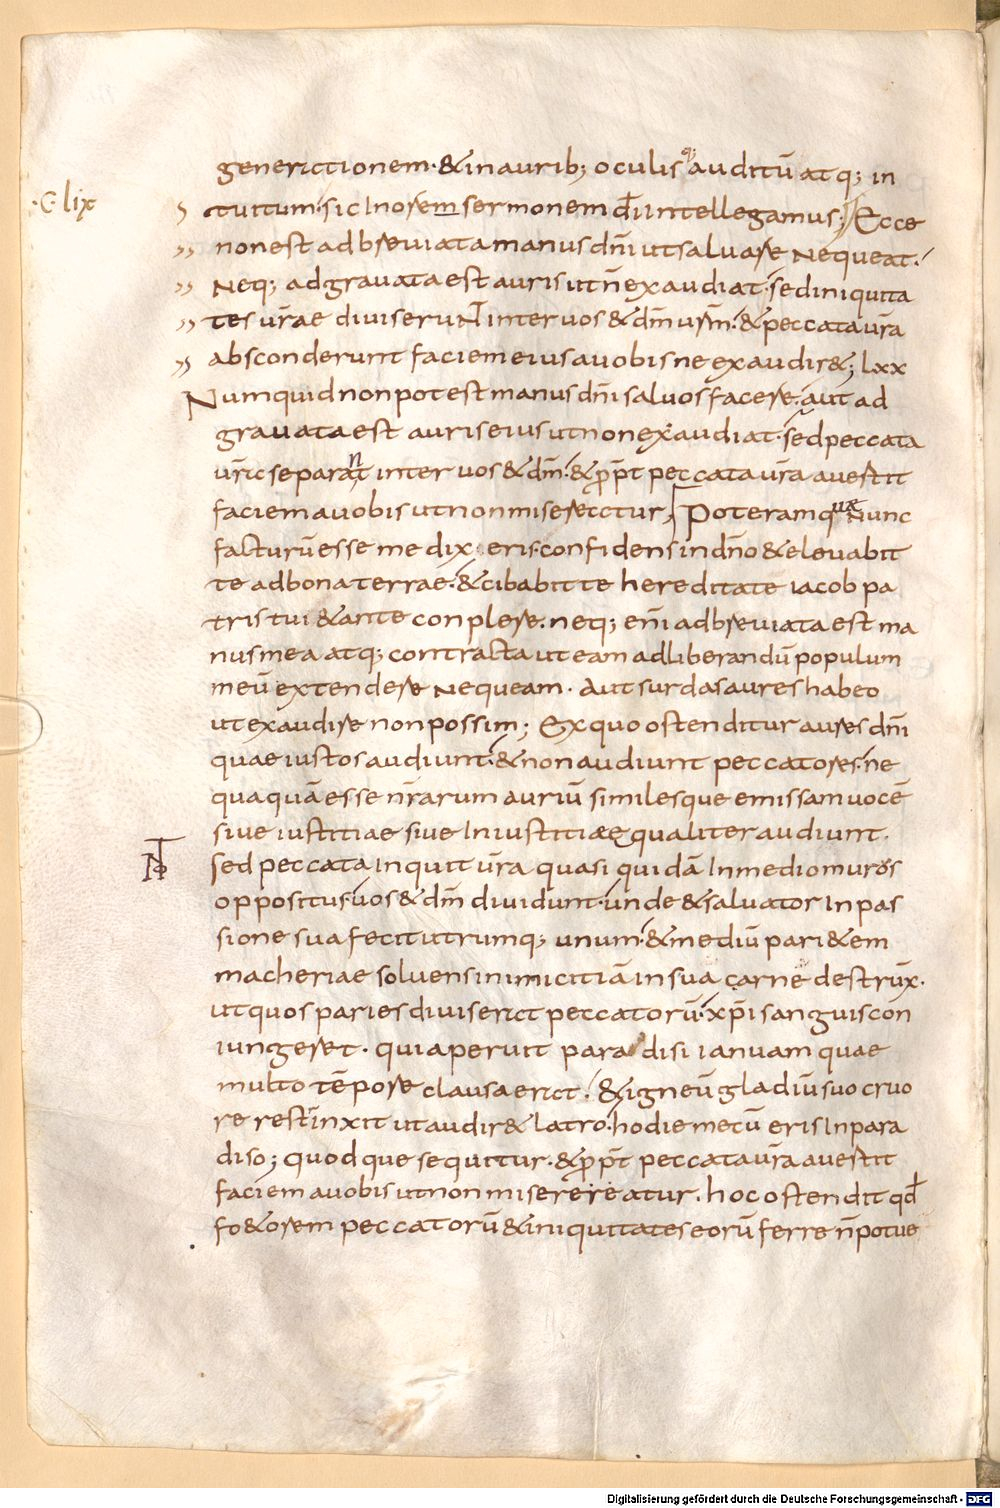 generationem· & in aurib; oculisq; auditū atq; in
·C· lix
tuitum· sic In osemsermonem dīi intellegamus; Ecce
non est adbreviata manus dn̄i ut salvare nequeat·
neq; adgravata est auris ut n̄ exaudiat· sed iniquita
tes vr̄ae diviserunt inter vos & dm̄ vr̄m· & peccata vr̄a
absconderunt faciem eius a vobis ne exaudir&; lxx
Numquid non potest manus dn̄i salvos facere· aut ad
gravata est auris eius ut non exaudiat· sed peccata
vr̄a separant inter vos & dm̄· & ꝓpt̄ peccata vr̄a avertit
faciem a vobis ut non misereatur; Poteram quae nunc
facturū esse me dixeris· confidens in dn̄o & elevabit
te ad bona terrae· & cibabit te hereditate iacob pa
tris tui & ante conplere· neq; enī adbreviata est ma
nus mea atq; contracta ut eam ad liberandū populum
meū extendere nequeam· Aut surdas aures habeo
ut exaudire non possim; Ex quo ostenditur aures dn̄i
quae iustos audiunt· & non audiunt peccatores· ne
quaquā esse nr̄arum auriū similes que emissam vocē
sive iustitiae sive Iniustitiae equaliter audiunt·
sed peccata Inquit vr̄a quasi quidā In medio murus
oppositus· vos & dm̄ dividunt· unde & salvator In pas
sione sua fecit utrumq; unum· & mediū pari&em
macheriae solvens inimicitiā in sua carne destrux·
ut quos paries diviserat peccatorū· xp̄i sanguis con
iungeret· qui aperuit paradisi ianuam quae
multo tēpore clausa erat· & igneū gladiū suo cruo
re restinxit ut audir& latro· hodie mecū eris In para
diso; quodque sequitur· & ꝓpt̄ peccata vr̄a avertit
faciem a vobis ut non miserereatur· hoc ostendit qđ
fo&orem peccatorū & iniquitates eorū ferre n̄ potue